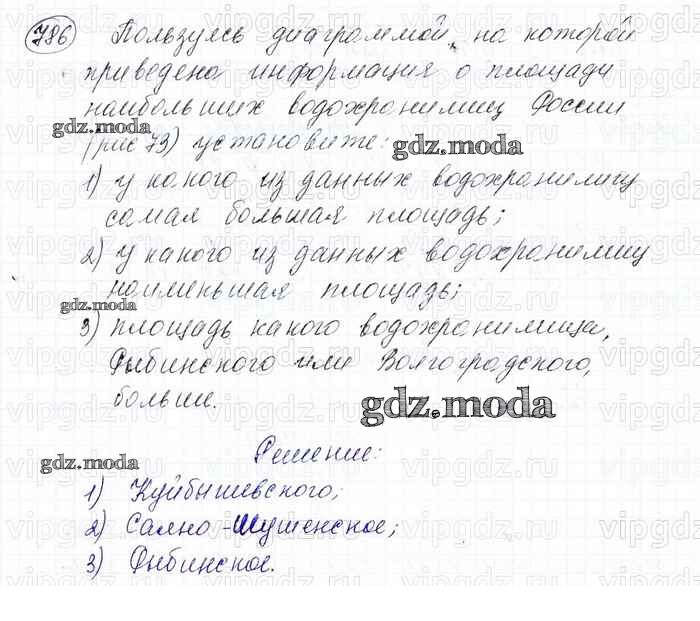 786 Пользуясь диаграммой, на которой
приведена информация о площади
наибольших водохранилищ России
gdz.moda
(рис 73) установите:
gdz.moda
1) у какого из данных водохранилищ
самая большая площадь;
2) у какого из данных водохранилищ
наименьшая площадь;
gdz.moda
3) площадь какого водохранилища,
Рыбинского или Волгоградского,
больше.
gdz.moda
Решение:
gdz.moda
1) Куйбышевского;
2) Саяно-Шушенское;
3) Рыбинское.